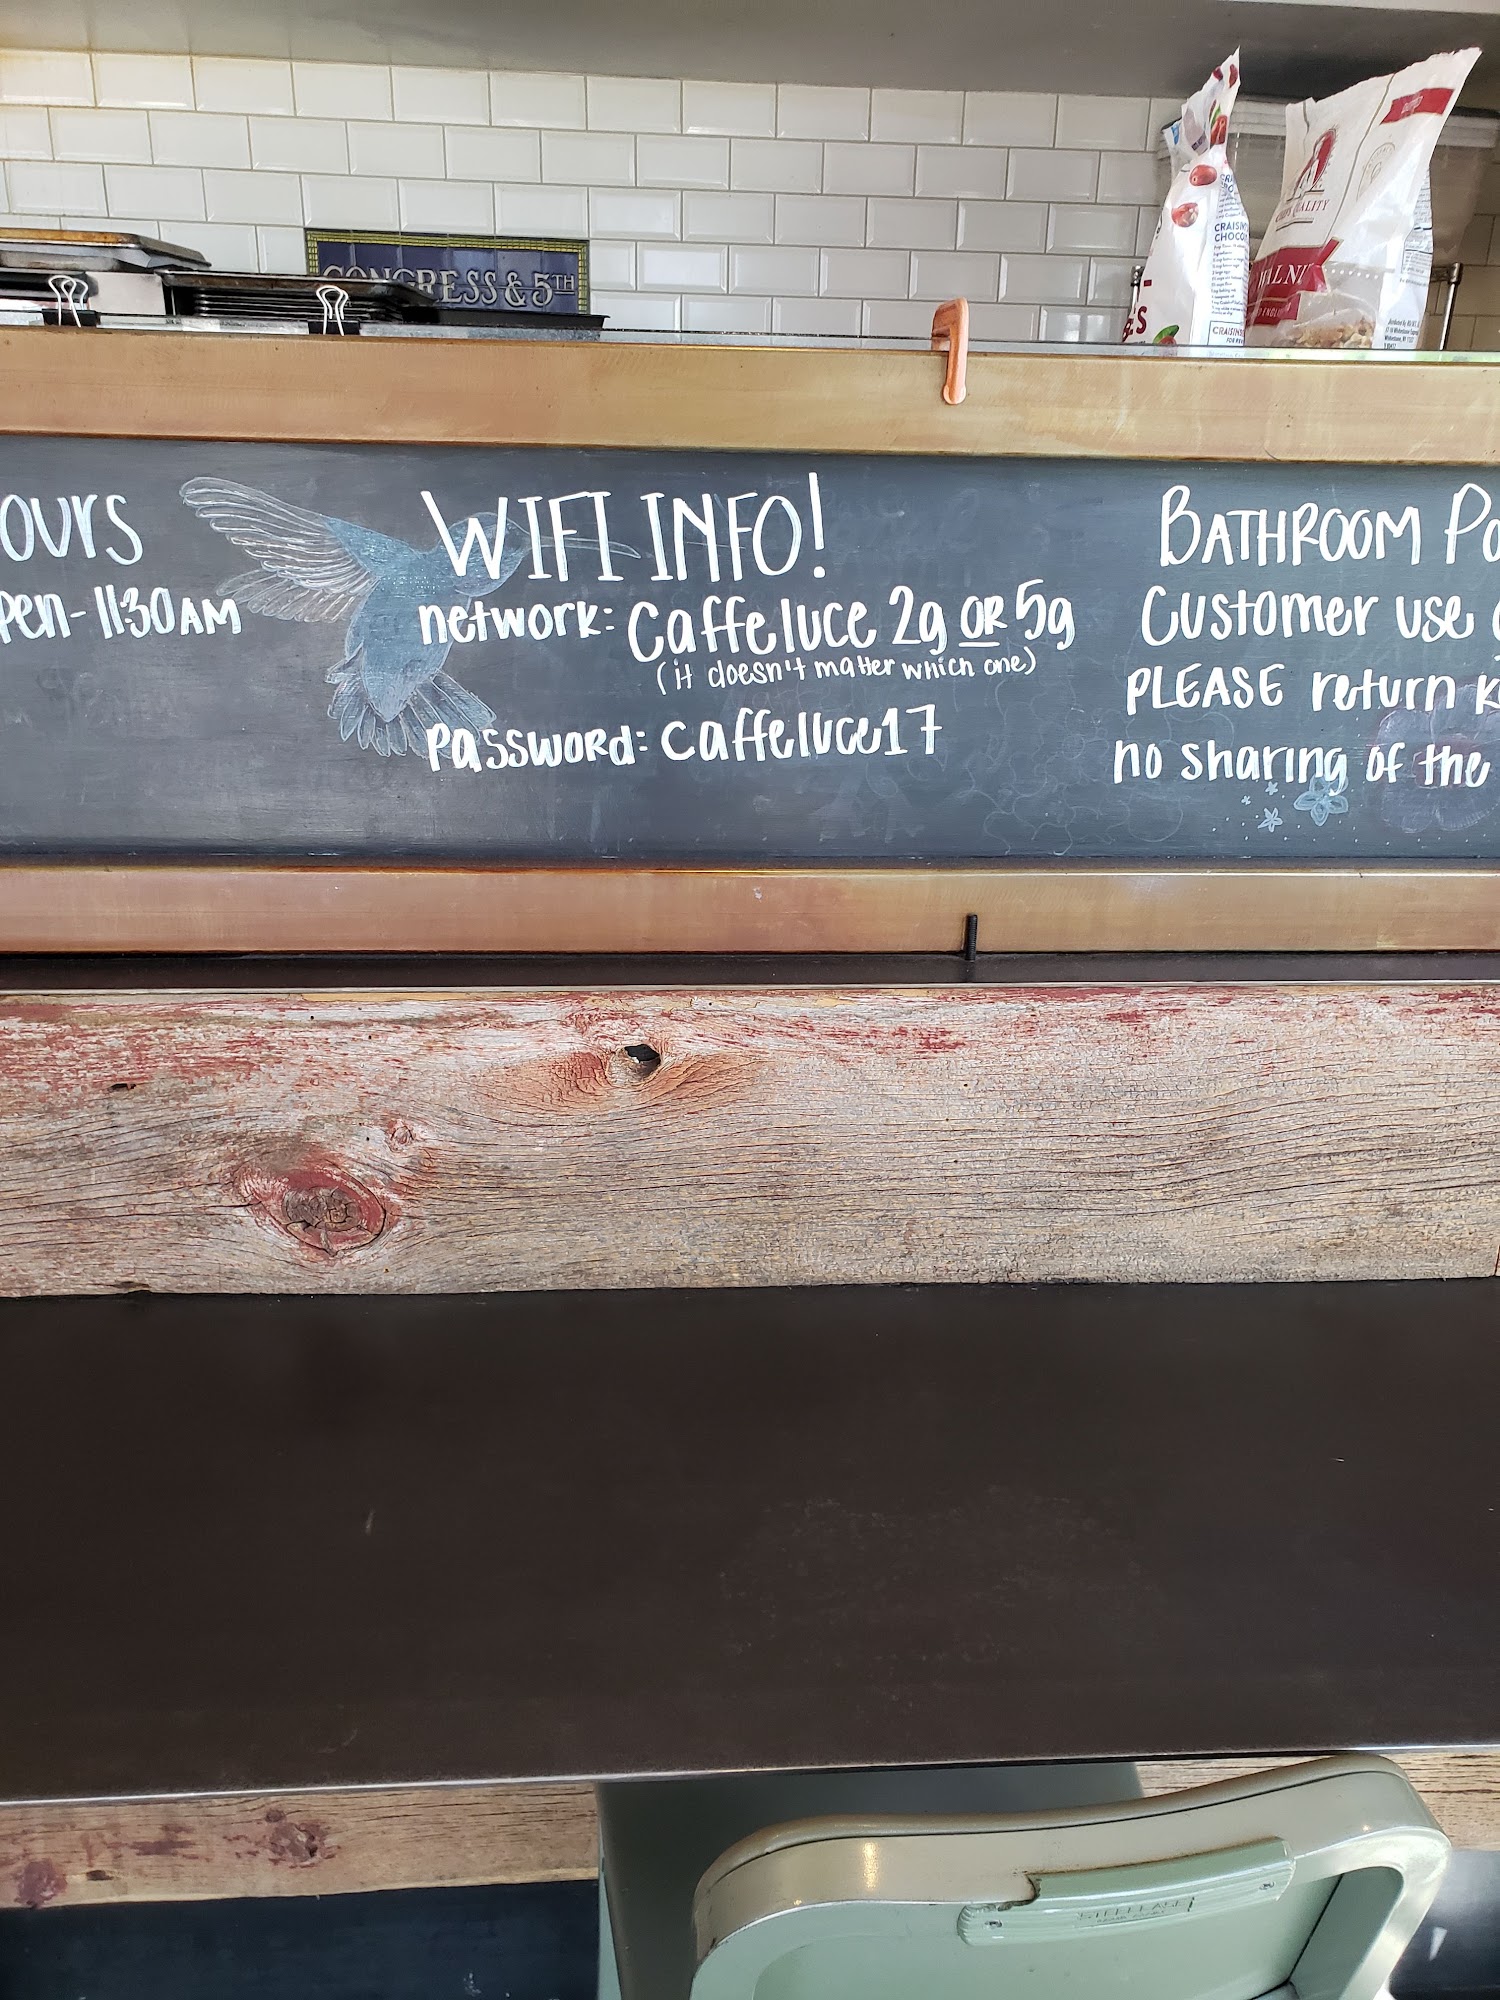 CONGRESS & 5TH
CRAISIN
CHOCO
CRAISINS
WALNU
ours
pen- 11:30AM
WIFI INFO!
network: Caffeluce 2g OR 5g
(it doesn't matter which one)
Password: caffeluce17
BATHROOM Po
Customer use
PLEASE return k
no sharing of the